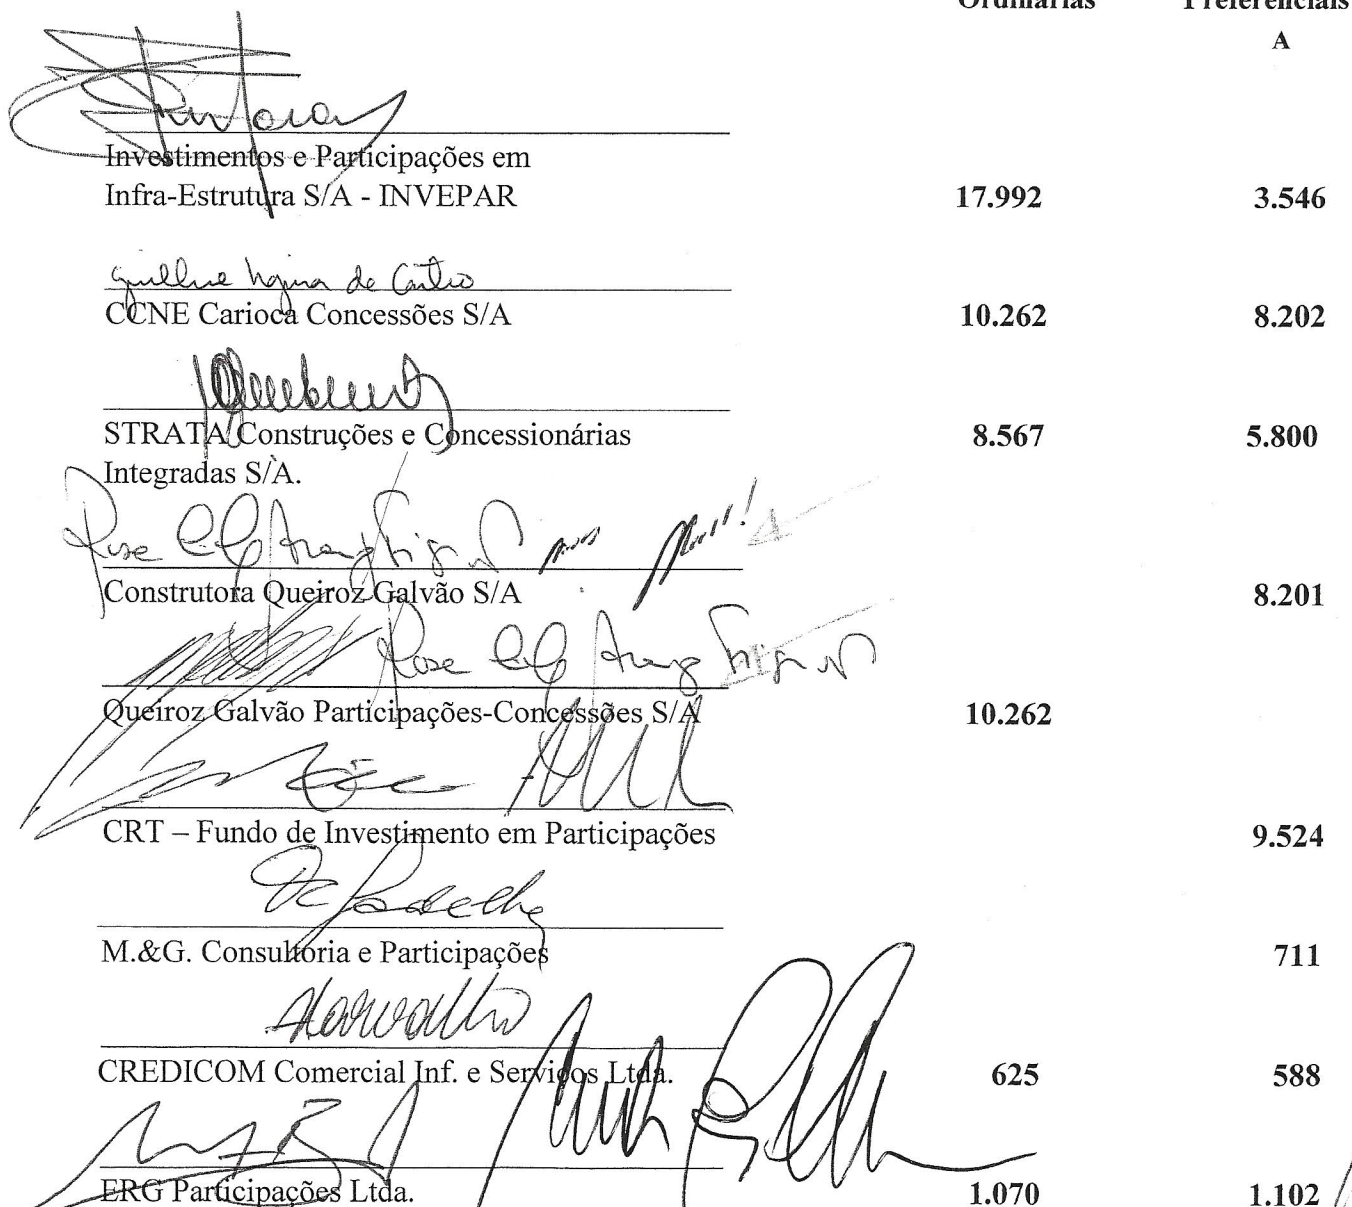 Ordinárias Preferenciais
A
Investimentos e Participações em
Infra-Estrutura S/A - INVEPAR 17.992 3.546
CCNE Carioca Concessões S/A 10.262 8.202
STRATA Construções e Concessionárias 8.567 5.800
Integradas S/A.
Construtora Queiroz Galvão S/A 8.201
Queiroz Galvão Participações-Concessões S/A 10.262
CRT – Fundo de Investimento em Participações 9.524
M.&G. Consultoria e Participações 711
CREDICOM Comercial Inf. e Serviços Ltda. 625 588
ERG Participações Ltda. 1.070 1.102